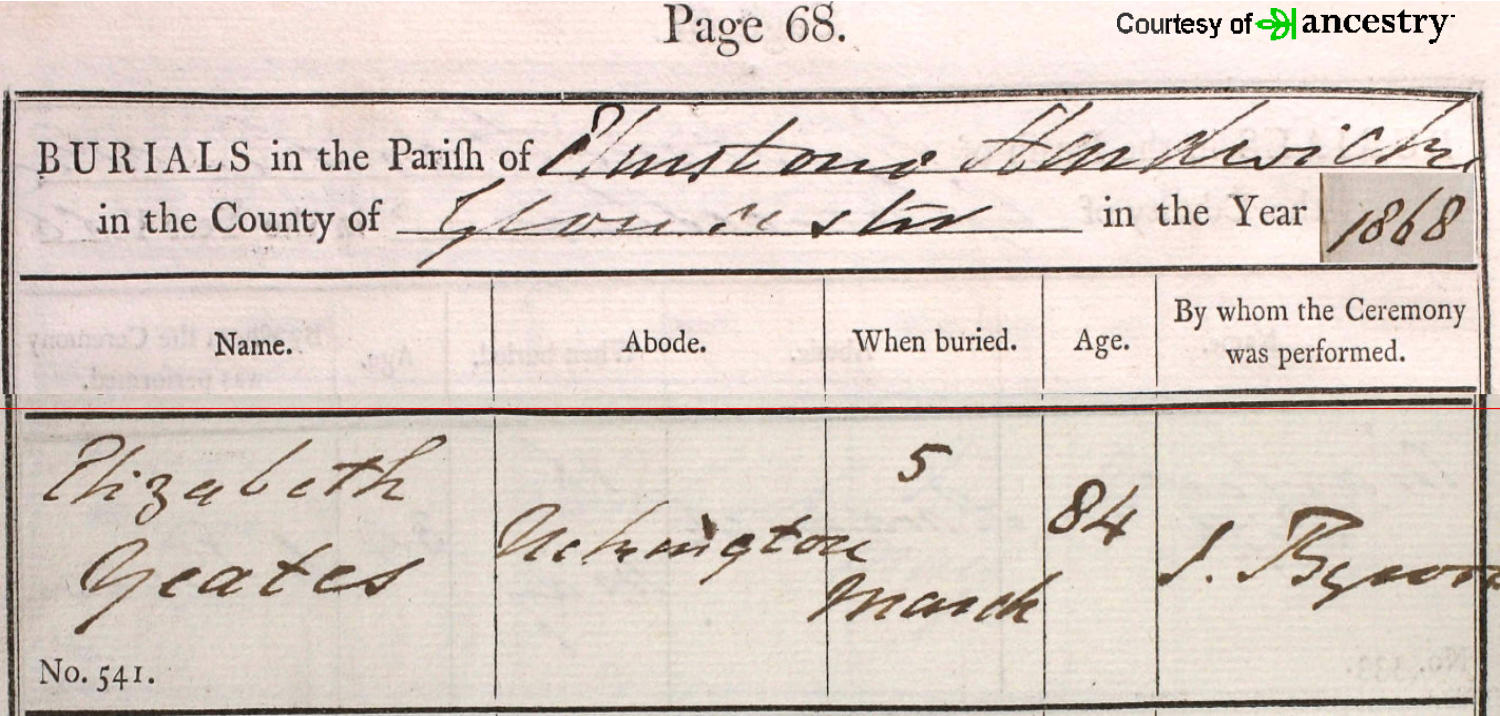 Page 68.
Courtesy of ancestry
BURIALS in the Pariſh of Elmstone Hardwicke
in the County of Gloucester in the Year 1868
Name. Abode. When buried. Age. By whom the Ceremony was performed.
Elizabeth
Yeates
Uckington
5
March
84
J. Byron
No. 541.